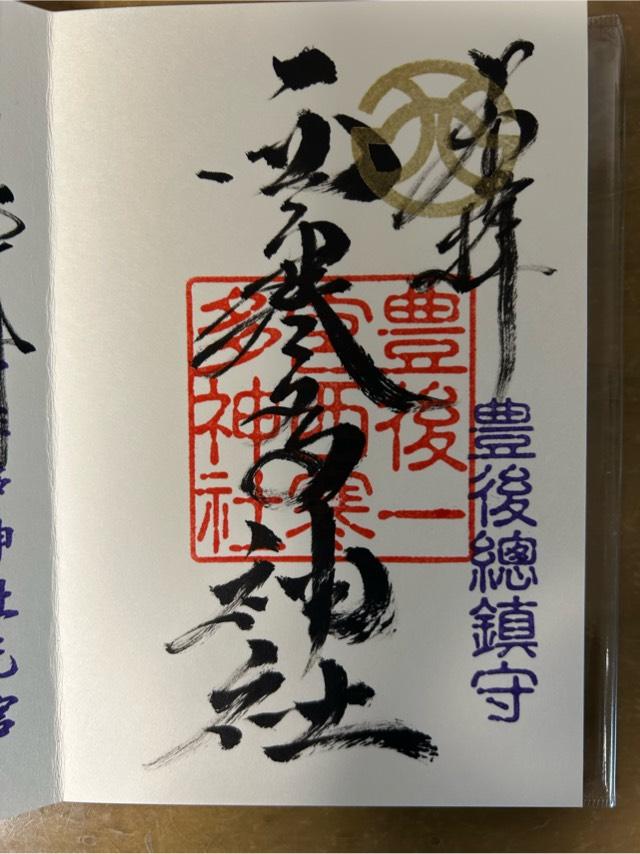 奉拝
豊後總鎮守
西寒多神社
豊後一
宮西寒
多神社
神社元宮